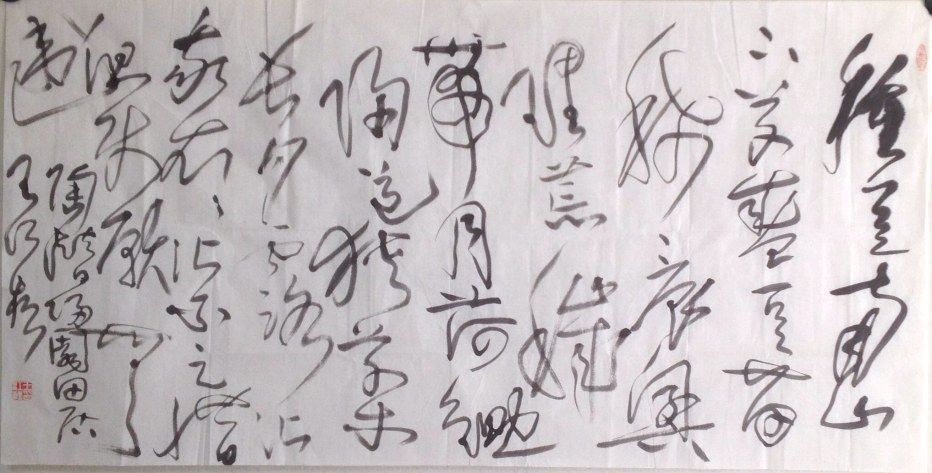 種豆南山
下草盛豆苗
稀晨興
理荒穢
帶月荷鋤
歸道狹草木
長夕露沾
我衣〻沾不足惜
但使願無
違
陶淵明歸園田居